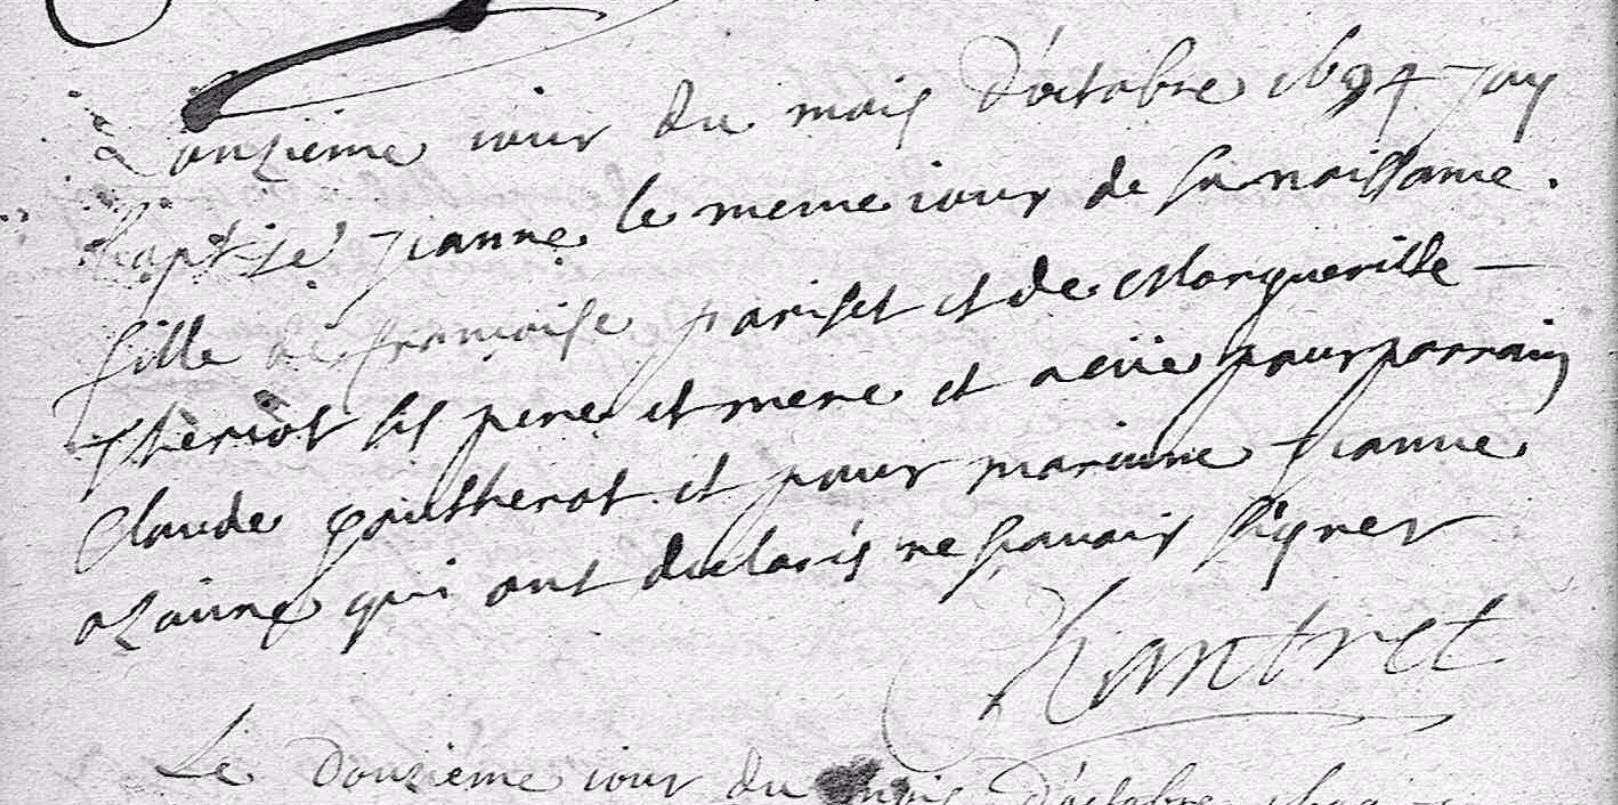 L'onzieme iour du mois d'octobre 1694 J'ay
baptisé Jeanne le meme iour de sa naissance.
fille de françoise pariset et de Margueritte –
Theriot ses pere et mere et a eüe pour parrain
Claude gautherot et pour maraine Jeanne
azaine qui ont declarés ne scavoir signer
Le douzième iour du mois d'octobre